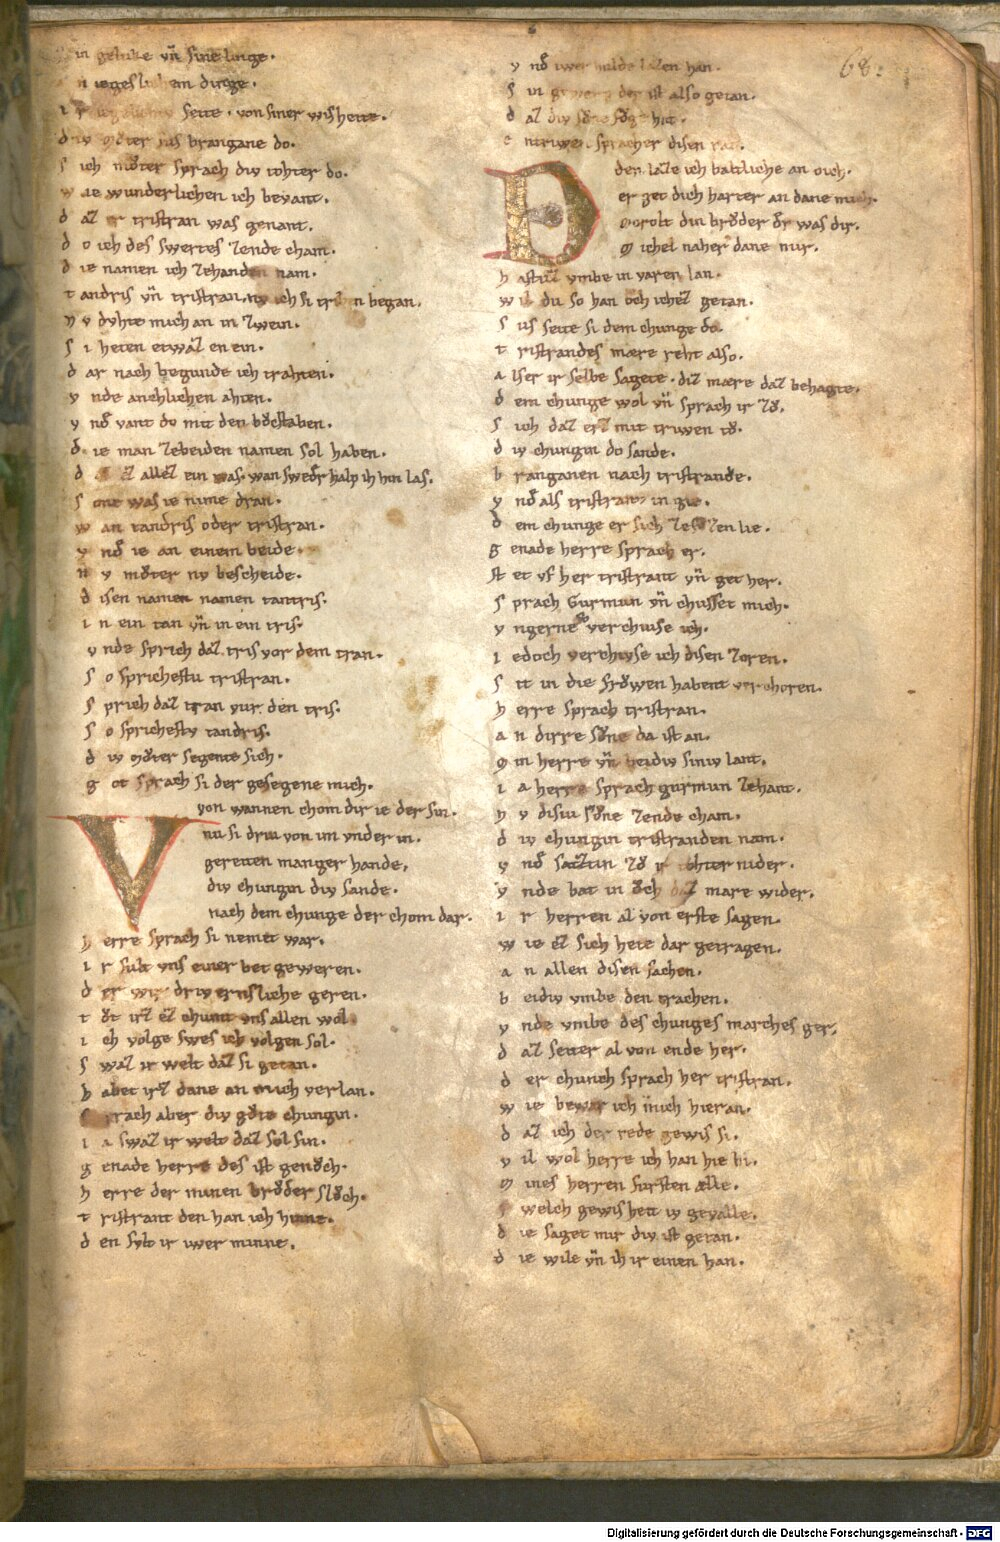 in geluke vn̄ sine linge.
n iegeslichem dinge.
seite. von siner wisheite.
d iv mv̊ter sus brangane do.
s ich mv̊ter sprach div tohter do.
w ie wunderlichen ich bevant.
d aʒ er tristran was genant.
d o ich des swertes ʒende cham.
d ie namen ich ʒehanden nam.
t andris vn̄ tristran. began.
n v dvhte mich an in ʒwein.
s i heten etwaʒ en ein.
d ar nach begunde ich trahten.
v nde anehlichen ahten.
v nd̄ vant do mit den bv̊chstaben.
d ie man ʒebeiden namen sol haben.
d eʒ alleʒ ein was. wan sweder halp ih hin las.
s one was ie nime dran.
w an tandris oder tristran.
v nd̄ ie an einem beide.
n v mv̊ter nv bescheide.
d isen namen namen tantris.
i n ein tan vn̄ in ein tris.
v nde sprich daʒ tris vor dem tran.
s o sprichestu tristran.
s prich daʒ tran vur den tris.
s o sprichestv tandris.
d iv mv̊ter segente sich.
g ot sprach si der gesegene mich.
V von wannen chom dir ie der sin.
nu si driu von im vnder in.
gereiten maniger hande.
div chungin div sande.
nach dem chunge der chom dar.
h erre sprach si nemet war.
i r sult vns einer bet geweren.
d er wir driv ernsliche geren.
t v̊t irʒ eʒ chumt vns allen wol.
i ch volge swes ich volgen sol.
s waʒ ir welt daʒ si getan.
h abet irʒ dane an mich verlan.
sprach aber div gv̊te chungin.
i a swaʒ ir welt daʒ sol sin.
g enade herre des ist genv̊ch.
h erre der minen brv̊der slv̊ch.
t ristrant den han ich hinne.
d en svlt ir iwer minne.
v nd̄ iwer hulde laʒen han.
s in gewerp der ist also getan.
d aʒ div sv̊ne fv̊ge hat.
e ntriwen. sprach er disen rat.
D den laʒe ich baltliche an dich.
er get dich harter an dane mich.
Morolt din brv̊der d̄r was dir.
michel naher dane mir.
h astuʒ vmbe in varen lan.
w il du so han ovch ich eʒ getan.
s us seite si dem chunge do.
t ristrandes mære reht also.
a lser ir selbe sagete. diʒ mære daʒ behagte.
d em chunge wol vn̄ sprach ir ʒv̊.
s ich daʒ erʒ mit triwen tv̊.
d iv chungin do sande.
b ranganen nach tristrande.
v nd̄ als tristran in gie.
d em chunge er sich ʒefvʒen lie.
g enade herre sprach er.
st et vf her tristrant vn̄ get her.
s prach Gurmun vn̄ chusset mich.
v ngerne so verchuise ich.
i edoch verchivse ich disen ʒoren.
s it in die frv̊wen habent verchoren.
h erre sprach tristran.
a n dirre sv̊ne da ist an.
m in herre vn̄ beidiv siniv lant.
i a herre sprach gurmun ʒehant.
n v disiu sv̊ne ʒende cham.
d iv chungin tristranden nam.
v nd̄ saʒtin ʒv̊ ir tohter nider.
v nde bat in v̊ch daʒ mare wider.
i r herren al von erste sagen.
w ie eʒ sich hete dar getragen.
a n allen disen sachen.
b eidiv vmbe den trachen.
v nde vmbe des chunges marches ger.
d aʒ seiter al von ende her.
d er chunch sprach her tristran.
w ie bewar ich mich hieran.
d aʒ ich der rede gewis si.
v il wol herre ich han hie bi.
m ines herren fursten ælle.
welch gewisheit iv gevalle.
d ie saget mir div ist getan.
d ie wile vn̄ ih ir einen han.
68.
Digitalisierung gefördert durch die Deutsche Forschungsgemeinschaft - DFG